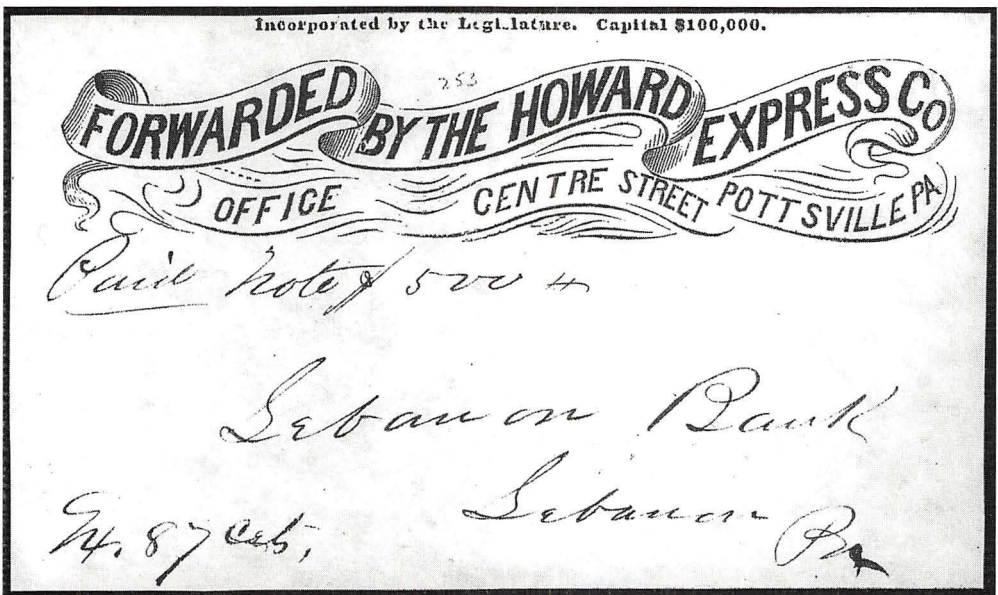 Incorporated by the Legislature. Capital $100,000.
253
FORWARDED BY THE HOWARD EXPRESS CO
OFFICE CENTRE STREET POTTSVILLE PA
Paid Note $ 500
Lebanon Bank
Lebanon Pa
87 Cts.